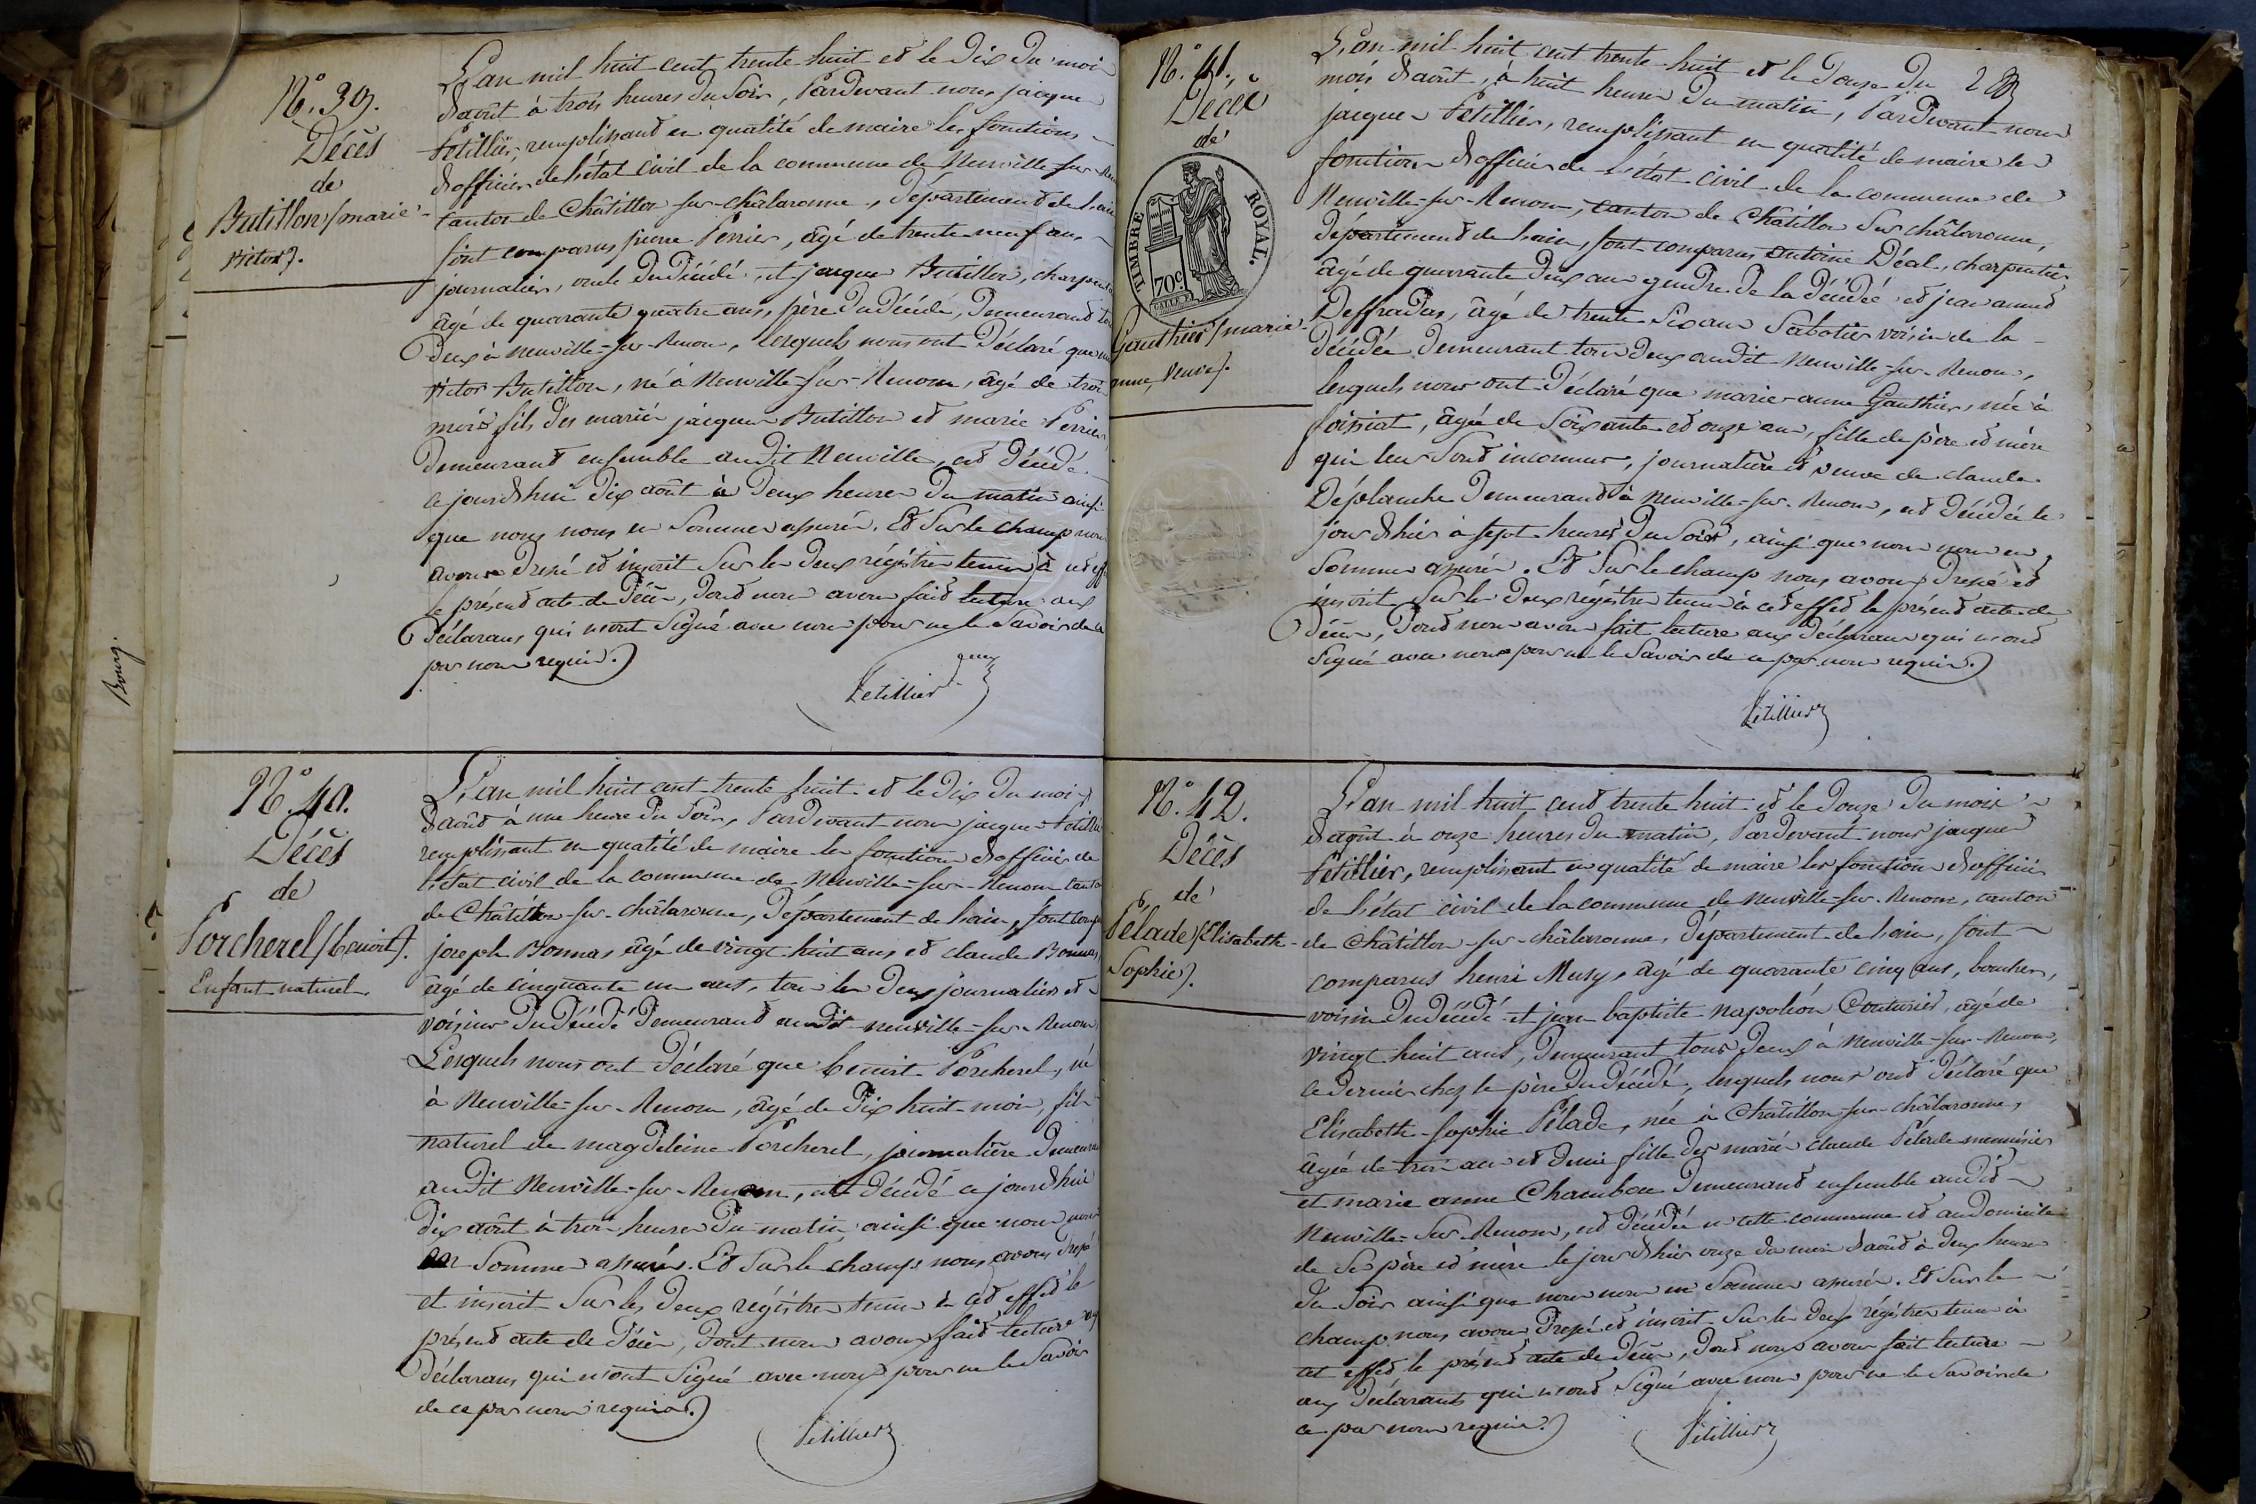 Bourg.
N.° 39.
Décès
de
Butillon (marie
victor).
L'an mil huit cent trente huit et le dix du mois
d'août à trois heures du soir, Pardevant nous jacques
Petillier, remplissant en qualité de maire les fonctions
d'officier de l'état civil de la commune de Neuville-sur-
canton de Châtillon-sur-châlaronne, département de l'ain
sont comparus pierre Perrier, âgé de trente neuf ans
journalier, oncle du décédé et jacques Butillon, charpen
âgé de quarante quatre ans, père du décédé, demeurant
deux à neuville-sur-Renom, lesquels nous ont déclaré que
victor Butillon, né à Neuville-sur-Renom, âgé de trois
mois fils des mariés jacques Butillon et marie Perrier,
demeurant ensemble audit Neuville, est décédé
ce jourd'hui dix août à deux heures du matin ainsi
que nous nous en sommes assurés. Et sur le champ nous
avons dressé et inscrit sur les deux régistres tenus à
le présent acte de décès, dont nous avons fait lecture aux
déclarans qui n'ont signé avec nous pour ne le savoir de ce
par nous requis.)
Petillier
N.° 40.
Décès
de
Porcherel (benoit).
Enfant naturel.
L'an mil huit cent trente huit et le dix du mois
d'août à une heure du soir, Pardevant nous jacques
remplissant en qualité de maire les fonctions d'officier de
l'état civil de la commune de Neuville-sur-Renom
de Châtillon-sur-châlaronne, département de l'ain, sont
joseph Bonnas âgé de vingt huit ans et claude Bonnas,
âgé de cinquante un ans, tous les deux journaliers et
voisins du décédé demeurant audit neuville-sur-Renom
Lesquels nous ont déclaré que benoit Porcherel, né
à Neuville-sur-Renom, âgé de dix huit mois, fils
naturel de magdeleine Porcherel, journalière
audit Neuville-sur-Renom, est décédé ce jourd'hui
dix août à trois heures du matin, ainsi que nous nous
en sommes assurés. Et sur le champ nous avons dressé
et inscrit sur les deux régistres tenus à cet effet le
présent acte de décès, dont nous avons fait lecture
déclarans qui n'ont signé avec nous pour ne le savoir
de ce par nous requis.)
Petillier
N.° 41.
Décès
de
TIMBRE ROYAL.
70c
Gauthier (marie
anne, veuve).
L'an mil huit cent trente huit et le douze du
mois d'août, à huit heures du matin, Pardevant nous
jacques Petillier, remplissant en qualité de maire les
fonctions d'officier de l'état civil de la commune de
Neuville-sur-Renom, canton de Châtillon sur châlaronne,
département de l'ain, sont comparus antoine Déal, charpentier
âgé de quarante deux ans gendre de la décédée et jean
Deffradas, âgé de trente six ans sabotier voisin de la
décédée demeurant tous deux audit Neuville-sur-Renom,
lesquels nous ont déclaré que marie-anne Gauthier, née à
foissiat, âgée de soixante et onze ans, fille de père et mère
qui leur sont inconnus, journalière et veuve de claude
Déplanche demeurant à Neuville-sur-Renom, est décédée le
jour d'hier à sept heures du soir, ainsi que nous nous en
sommes assurés. Et sur le champ nous avons dressé et
inscrit sur les deux régistres tenus à cet effet le présent acte de
décès, dont nous avons fait lecture aux déclarans qui n'ont
signé avec nous pour ne le savoir de ce par nous requis.)
Petillier
N.° 42.
Décès
de
Pélade (Elisabeth-
Sophie).
L'an mil huit cent trente huit et le douze du mois
d'août à onze heures du matin, Pardevant nous jacques
Petillier, remplissant en qualité de maire les fonctions d'officier
de l'état civil de la commune de Neuville-sur-Renom, canton
de Châtillon-sur-châlaronne, département de l'ain, sont
comparus henri Musy, âgé de quarante cinq ans, boucher,
voisin du décédé et jean baptiste napoléon Couturier, âgé de
vingt huit ans, demeurant tous deux à Neuville-sur-Renom,
ce dernier chez le père du décédé, lesquels nous ont déclaré que
Elisabeth-Sophie Pélade, née à Châtillon-sur-châlaronne,
âgée de trois ans et demi fille des mariés claude Pélade menuisier
et marie anne Chambon demeurant ensemble audit
Neuville-sur-Renom, est décédée en cette commune et au domicile
de ses père et mère le jour d'hier onze du mois d'août à deux heures
du soir ainsi que nous nous en sommes assurés. Et sur le
champ nous avons dressé et inscrit sur les deux régistres tenus à
cet effet le présent acte de décès, dont nous avons fait lecture
aux déclarants qui n'ont signé avec nous pour ne le savoir de
ce par nous requis.)
Petillier